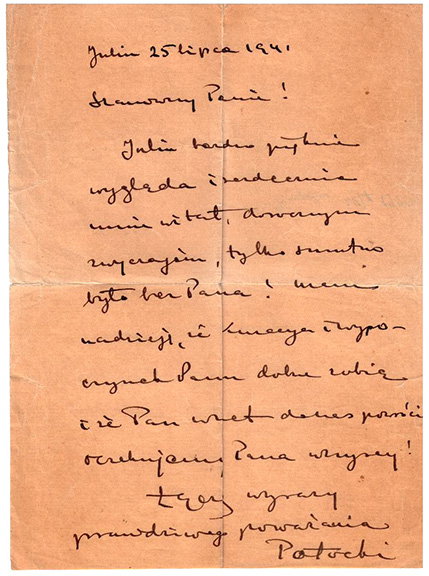 Julin 25 lipca 1941
Szanowny Panie!
Julin bardzo pięknie
wygląda i serdecznie
mnie witał, dawnym
zwyczajem, tylko smutno
było bez Pana! Mam
nadzieję, że kuracya i wypo-
czynek Panu dobrze robią
i że Pan wret powróci
oczekujemy Pana wszyscy!
Łączę wyrazy
prawdziwego poważania
Potocki